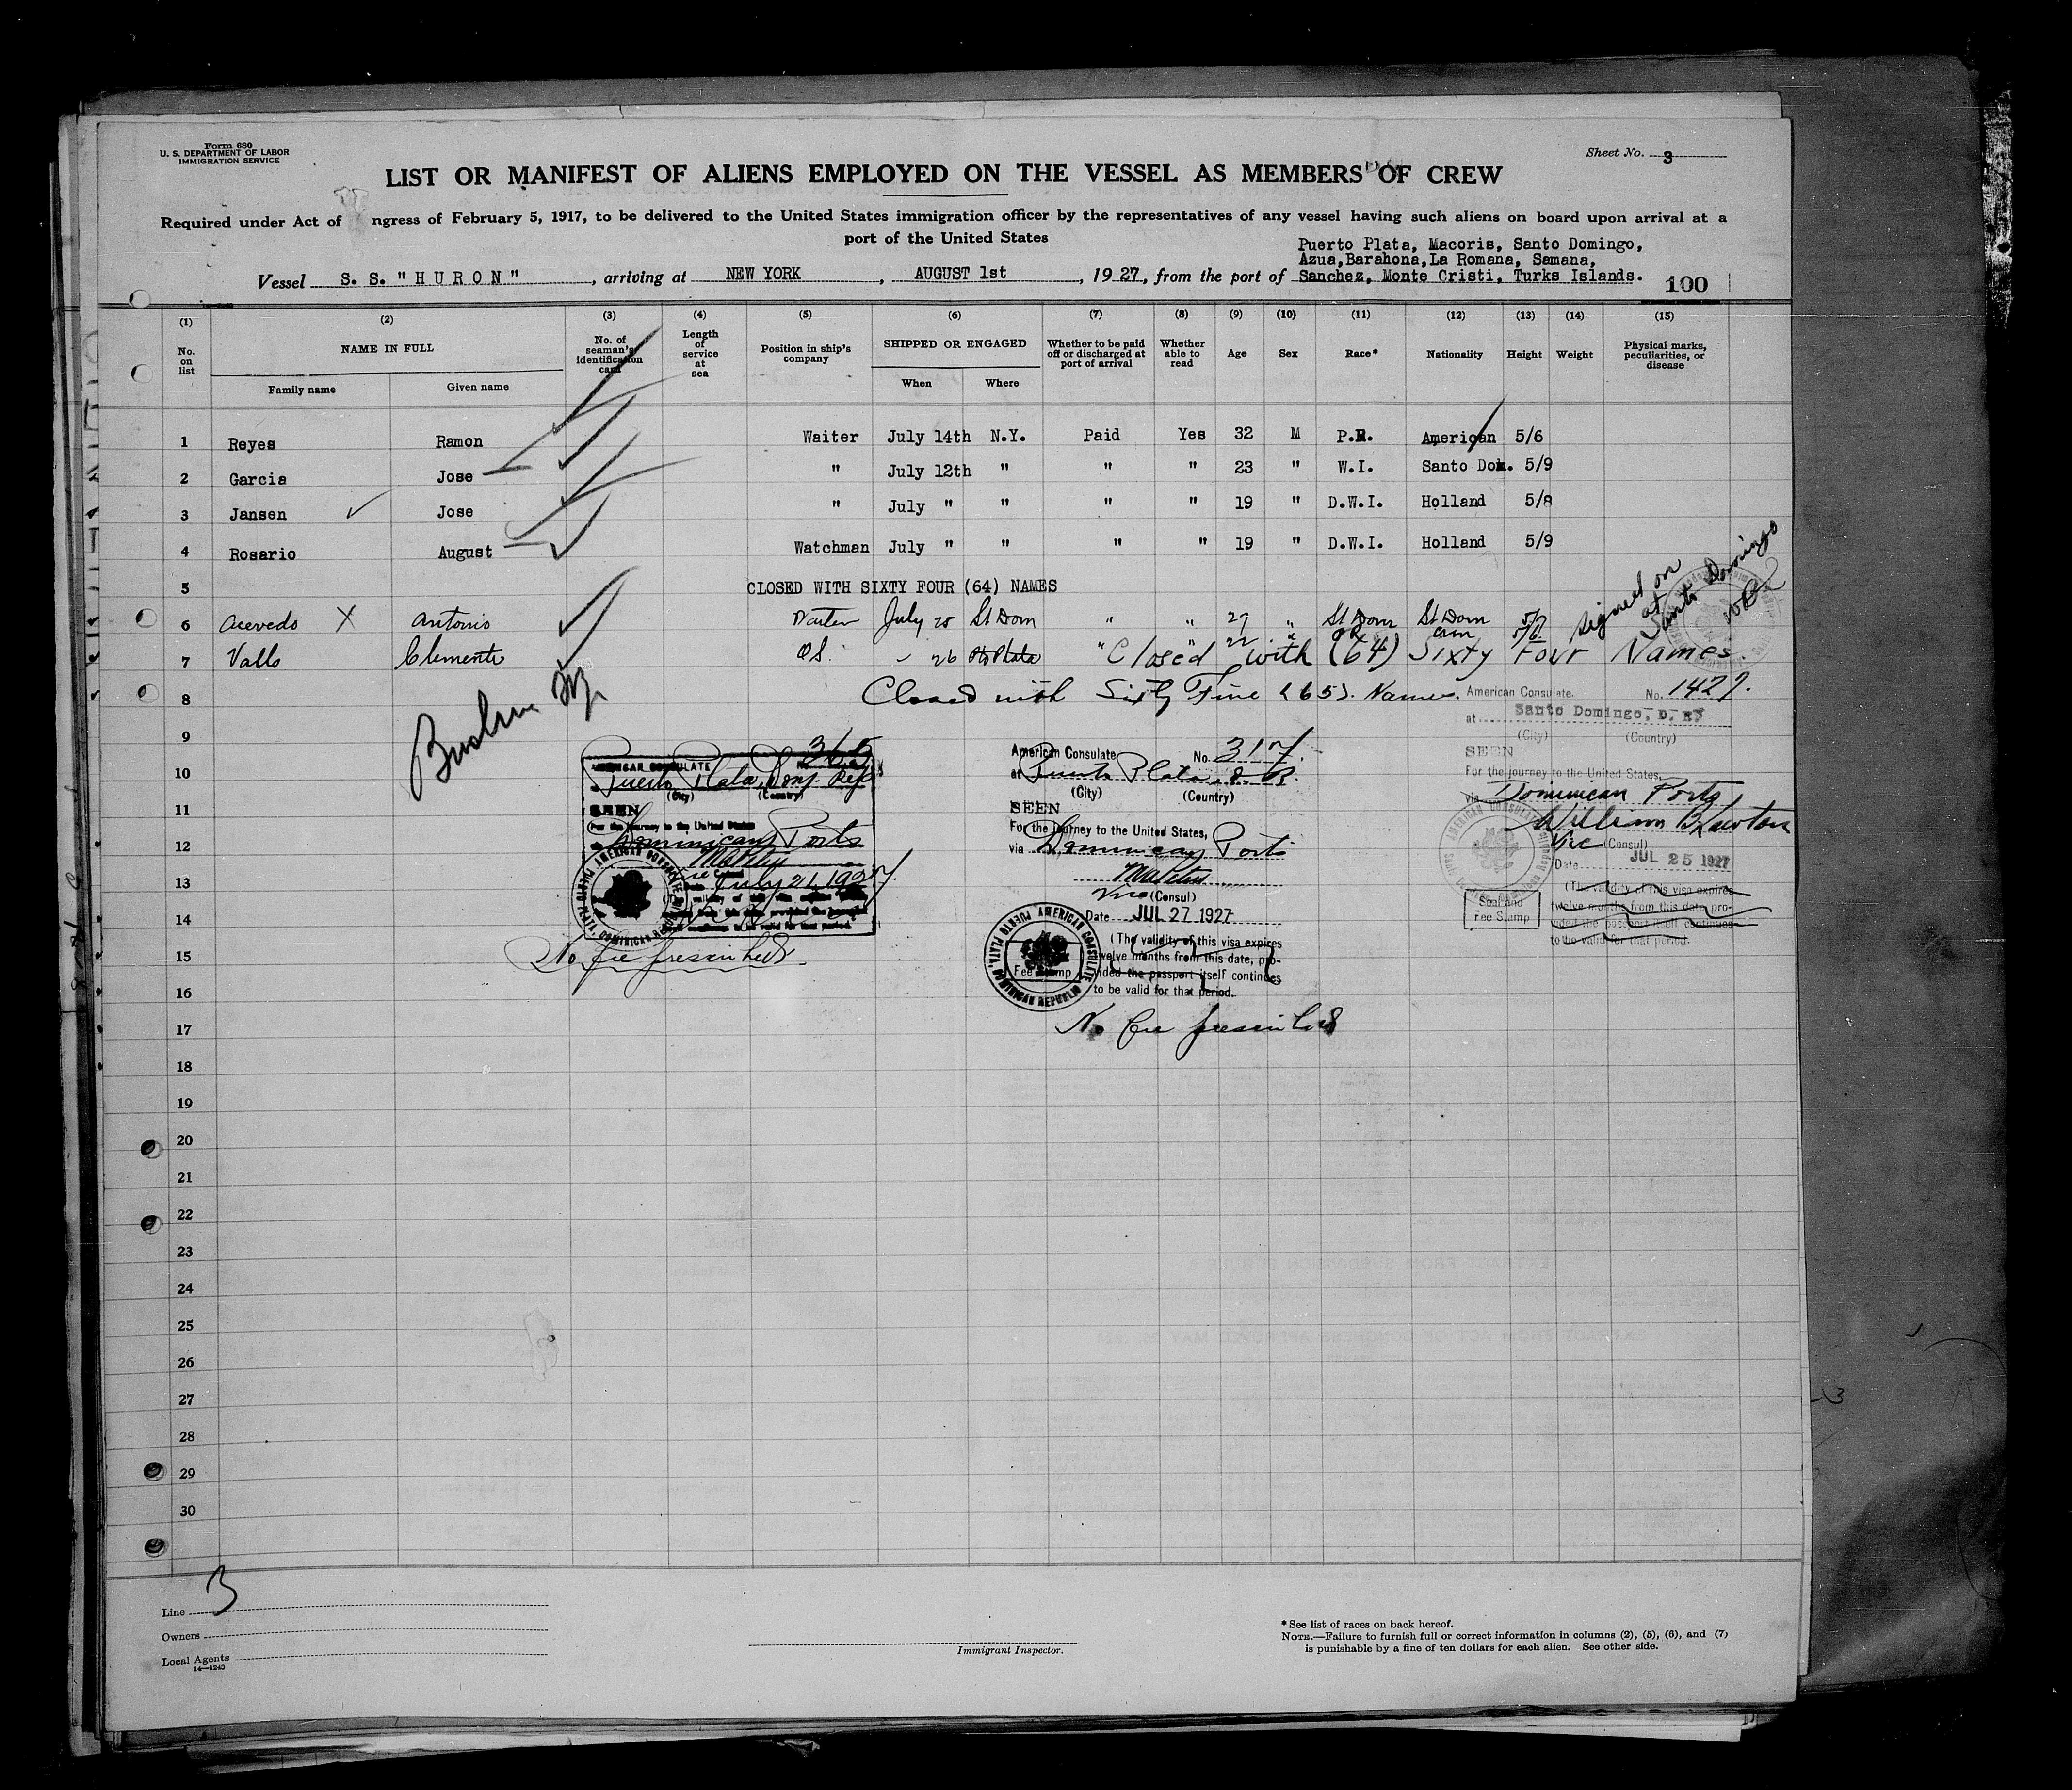 Form 680
U. S. DEPARTMENT OF LABOR
IMMIGRATION SERVICE
Sheet No. 3
LIST OR MANIFEST OF ALIENS EMPLOYED ON THE VESSEL AS MEMBERS OF CREW
Required under Act of ngress of February 5, 1917, to be delivered to the United States immigration officer by the representatives of any vessel having such aliens on board upon arrival at a
port of the United States
Puerto Plata, Macoris, Santo Domingo,
Azua,Barahona,La Romana, Samana,
Vessel S. S. "HURON", arriving at NEW YORK, AUGUST 1st, 1927, from the port of Sanchez, Monte Cristi, Turks Islands.
100
(1) (2) (3) (4) (5) (6) (7) (8) (9) (10) (11) (12) (13) (14) (15)
No. on list NAME IN FULL No. of seaman's identification card Length of service at sea Position in ship's company SHIPPED OR ENGAGED Whether to be paid off or discharged at port of arrival Whether able to read Age Sex Race* Nationality Height Weight Physical marks, peculiarities, or disease
Family name Given name When Where
1 Reyes Ramon Waiter July 14th N.Y. Paid Yes 32 M P.R. American 5/6
2 Garcia Jose " July 12th " " " 23 " W.I. Santo Dom. 5/9
3 Jansen Jose " July " " " " 19 " D.W.I. Holland 5/8
4 Rosario August Watchman July " " " " 19 " D.W.I. Holland 5/9
5 CLOSED WITH SIXTY FOUR (64) NAMES
Signed on at Santo Domingo
6 Acevedo X Antonio July 25 St Dom " " 29 " St Dom St Dom 5/7
7 Valls Clemente OS. 26 Pto Plata " " 22 " PR am 5/6
"Closed with (64) Sixty Four Names.
8 Closed with Sixty Five (65). Names.
9
10
11
12
13
14
15
16
17
18
19
20
21
22
23
24
25
26
27
28
29
30
AMERICAN CONSULATE No. 365
Puerto Plata, Dom. Rep
(City) (Country)
SEEN
For the journey to the United States
Dominican Ports
July 21, 1927.
AMERICAN CONSULATE PUERTO PLATA, DOMINICAN REPUBLIC
No fee prescribed
American Consulate No. 317.
at Puerto Plata, D.R.
(City) (Country)
SEEN
For the journey to the United States,
via Dominican Ports
Vice (Consul)
Date JUL 27 1927
(The validity of this visa expires
twelve months from this date, pro-
vided the passport itself continues
to be valid for that period.
Fee Stamp
AMERICAN CONSULATE PUERTO PLATA, DOMINICAN REPUBLIC
No fee prescribed
American Consulate. No. 1427.
at Santo Domingo, D. R.
(City) (Country)
SEEN
For the journey to the United States,
via Dominican Ports,
William B Lawton
Vice (Consul)
Date JUL 25 1927
(The validity of this visa expires
twelve months from this date, pro-
vided the passport itself continues
to be valid for that period.
Seal and
Fee Stamp
Line 3
Owners
Local Agents
14—1240
Immigrant Inspector.
* See list of races on back hereof.
NOTE.—Failure to furnish full or correct information in columns (2), (5), (6), and (7)
is punishable by a fine of ten dollars for each alien. See other side.